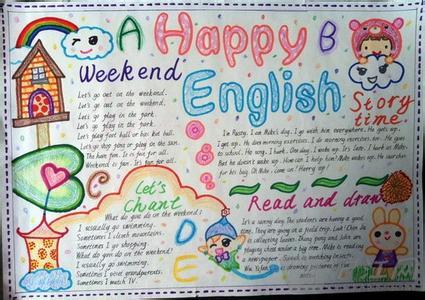 A Happy B
English
Weekend
Let's go out on the weekend.
Let's go out on the weekend.
Let's go play in the park.
Let's go play in the park.
Let's play foot ball or bas ket ball.
Let's go shop ping or play in the sun.
The have fun. It is fun for all.
Weekend is fun. It's fun for all.
Story
time
I'm Rusty. I am Mike's dog. I go with him everywhere. He gets up.
I get up. He does morning exercises. I do morning exercises too. He goes
to school. He sings. I bark. One day I wake up. It's late. I bark at Mike.
But he doesn't wake up. How can I help him? Mike wakes up. He searches
for his bag. Oh Mike, come on! Hurry up!
C
Let's
Chant
What do you do on the weekend?
I usually go swimming.
Sometimes I climb mountains.
Sometimes I go shopping.
What do you do on the weekend?
I usually go swimming.
Sometimes I visit grandparents.
Sometimes I watch TV.
D
E
Read and draw
It's a sunny day. The students are having a good
time. They are going on a field trip. Look! Chen Jie
is collecting leaves. Zhang Peng and John are
playing chess under a big tree. Mike is reading
a newspaper. Sarah is watching insects.
Wu Yifan is drawing pictures of